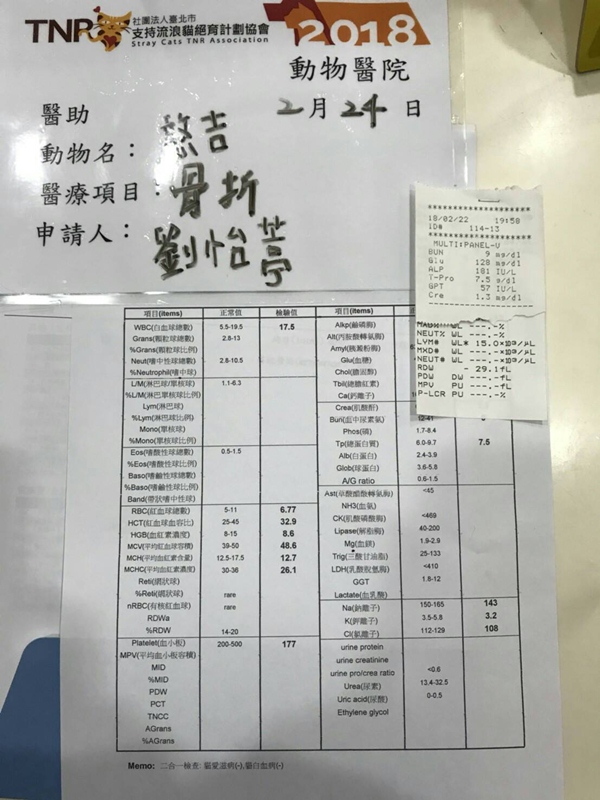 TNR
社團法人臺北市
支持流浪貓絕育計劃協會
Stray Cats TNR Association
2018
動物醫院
醫助
2月24日
動物名：憨吉
醫療項目：骨折
申請人：劉怡苹
18/02/22 19:58
ID# 114-13
MULTI:PANEL-V
BUN 9 mg/dl
Glu 128 mg/dl
ALP 181 IU/L
T-Pro 7.5 g/dl
GPT 57 IU/L
Cre 1.3 mg/dl
NEUT% WL ---.-%
LYM# WL* 15.0×10³/μL
MXD# WL ---.-×10³/μL
NEUT# WL ---.-×10³/μL
RDW - 29.1fL
PDW DW ---.-fL
MPV PU ---.-fL
P-LCR PU ---.-%
項目(items) 正常值 檢驗值
WBC(白血球總數) 5.5-19.5 17.5
Grans(顆粒球總數) 2.8-13
%Grans(顆粒球比例)
Neut(嗜中性球總數) 2.8-10.5
%Neutrophil(嗜中球)
L/M(淋巴球/單核球) 1.1-6.3
%L/M(淋巴球單核球比例)
Lym(淋巴球)
%Lym(淋巴球比例)
Mono(單核球)
%Mono(單核球比例)
Eos(嗜酸性球總數) 0.5-1.5
%Eos(嗜酸性球比例)
Baso(嗜鹼性球總數)
%Baso(嗜鹼性球比例)
Band(帶狀嗜中性球)
RBC(紅血球總數) 5-11 6.77
HCT(紅血球血容比) 25-45 32.9
HGB(血紅素濃度) 8-15 8.6
MCV(平均紅血球容積) 39-50 48.6
MCH(平均血紅素含量) 12.5-17.5 12.7
MCHC(平均血紅素濃度) 30-36 26.1
Reti(網狀球)
%Reti(網狀球) rare
nRBC(有核紅血球) rare
RDWa
%RDW 14-20
Platelet(血小板) 200-500 177
MPV(平均血小板容積)
MID
%MID
PDW
PCT
TNCC
AGrans
%AGrans
項目(items)
Alkp(鹼磷酶)
Alt(丙胺酸轉氨酶)
Amyl(胰澱粉酶)
Glu(血糖)
Chol(膽固醇)
Tbil(總膽紅素)
Ca(鈣離子)
Crea(肌酸酐)
Bun(血中尿素氮) 12-41
Phos(磷) 1.7-8.4
Tp(總蛋白質) 6.0-9.7 7.5
Alb(白蛋白) 2.4-3.9
Glob(球蛋白) 3.6-5.8
A/G ratio 0.6-1.5
Ast(草醋酸轉氨酶) <45
NH3(血氨)
CK(肌酸磷酸酶) <469
Lipase(解脂酶) 40-200
Mg(血鎂) 1.9-2.9
Trig(三酸甘油脂) 25-133
LDH(乳酸脫氫酶) <410
GGT 1.8-12
Lactate(血乳酸)
Na(鈉離子) 150-165 143
K(鉀離子) 3.5-5.8 3.2
Cl(氯離子) 112-129 108
urine protein
urine creatinine
urine pro/crea ratio <0.6
Urea(尿素) 13.4-32.5
Uric acid(尿酸) 0-0.5
Ethylene glycol
Memo: 二合一檢查: 貓愛滋病(-),貓白血病(-)